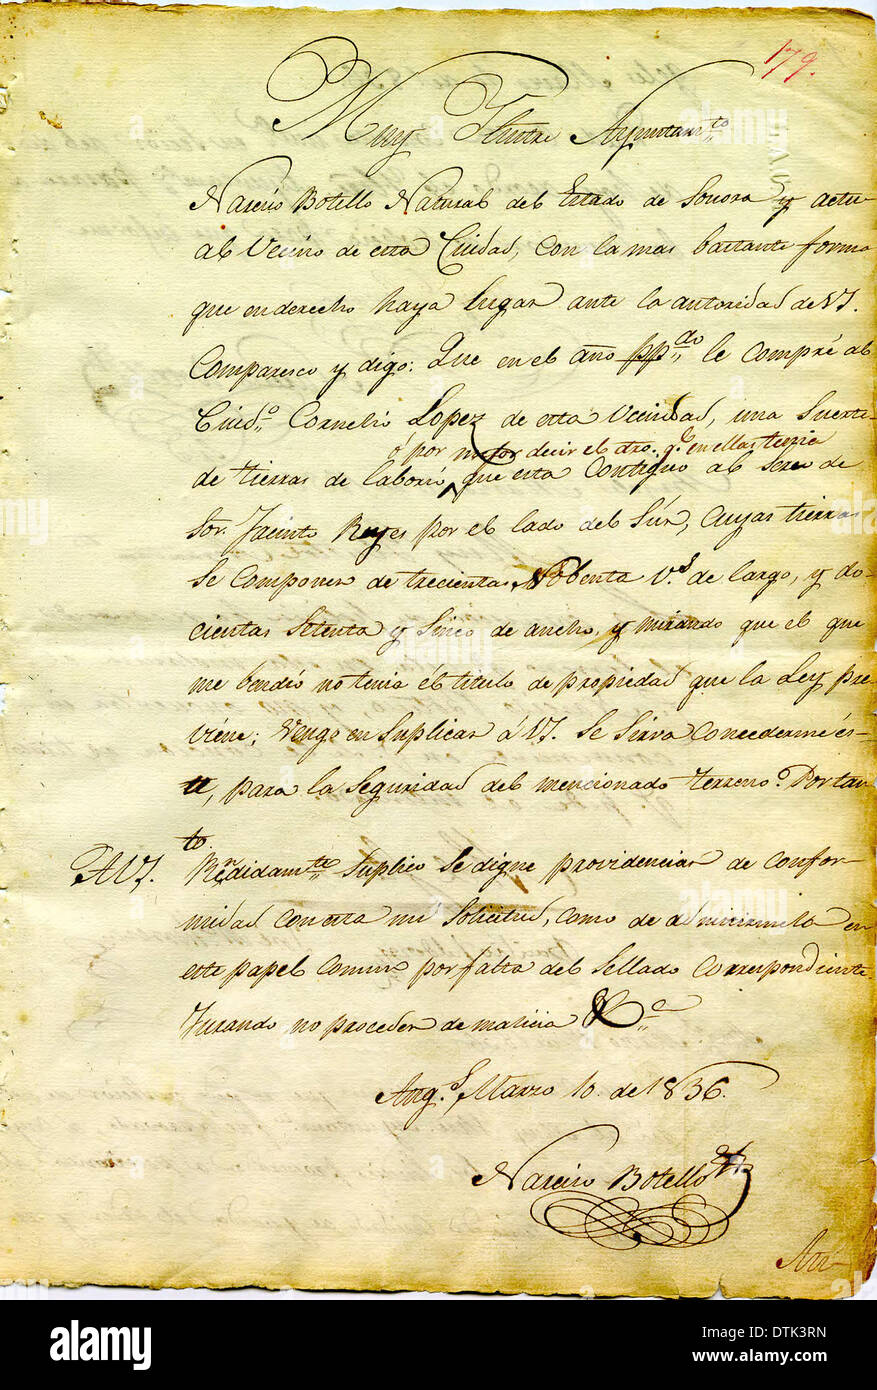 179.
Muy Ilustre Ayuntam.to
Narciso Botello Natural del Estado de Sonora y actu
al Vecino de esta Ciudad, con la mas bastante forma
que en derecho haya lugar ante la autoridad de VS.
Comparesco y digo: Que en el año pp.do le compré al
Ciud.o Cornelio Lopez de esta Vecindad, una Suerte
ó por mejor decir el dro. q.e en ellas tenia
de tierras de labor, que esta Contiguo al serco de
Sor. Jacinto Reyes por el lado del Súr, cuyas tierras
se componen de trecientas Nobenta v.s de largo, y do-
cientas Setenta y Sinco de ancho, y mirando que el que
me bendió no tenia él titulo de propiedad que la Ley pre-
viene; Vengo en Suplicar á VS. Se Sirva Concederme és-
te, para la Seguridad del mencionado terreno. Por tan-
to.
A VS. Rendidam.te Suplico Se digne providenciar de confor-
midad con esta mi Solicitud, como de admitirmela en
este papel comun por falta del Sellado Correspondiente.
Jurando no proceder de malicia &.c
Ang.s Marzo 10. de 1836.
Narciso Botello
alamy
Image ID: DTK3RN
www.alamy.com